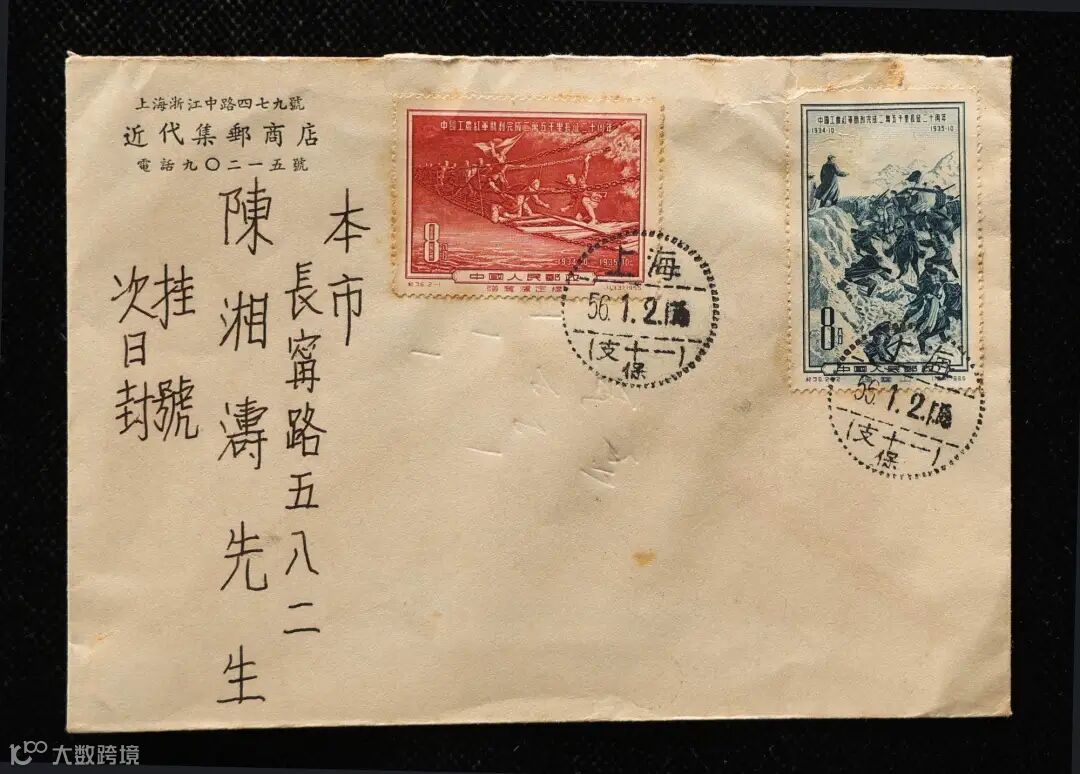 上海浙江中路四七九號
近代集郵商店
電話九〇二一五號
本市
長寗路五八二
陳湘濤先生
掛號
次日封
中國工農紅軍勝利完成二萬五千里長征二十周年
8分
1934.10 1935.10
中國人民郵政
紀36.2-1
中國工農紅軍勝利完成二萬五千里長征二十周年
1934.10 1935.10
8分
中國人民郵政
紀36.2-2
上海
56.1.2
(支十一)
保
上海
56.1.2
(支十一)
保
大数跨境